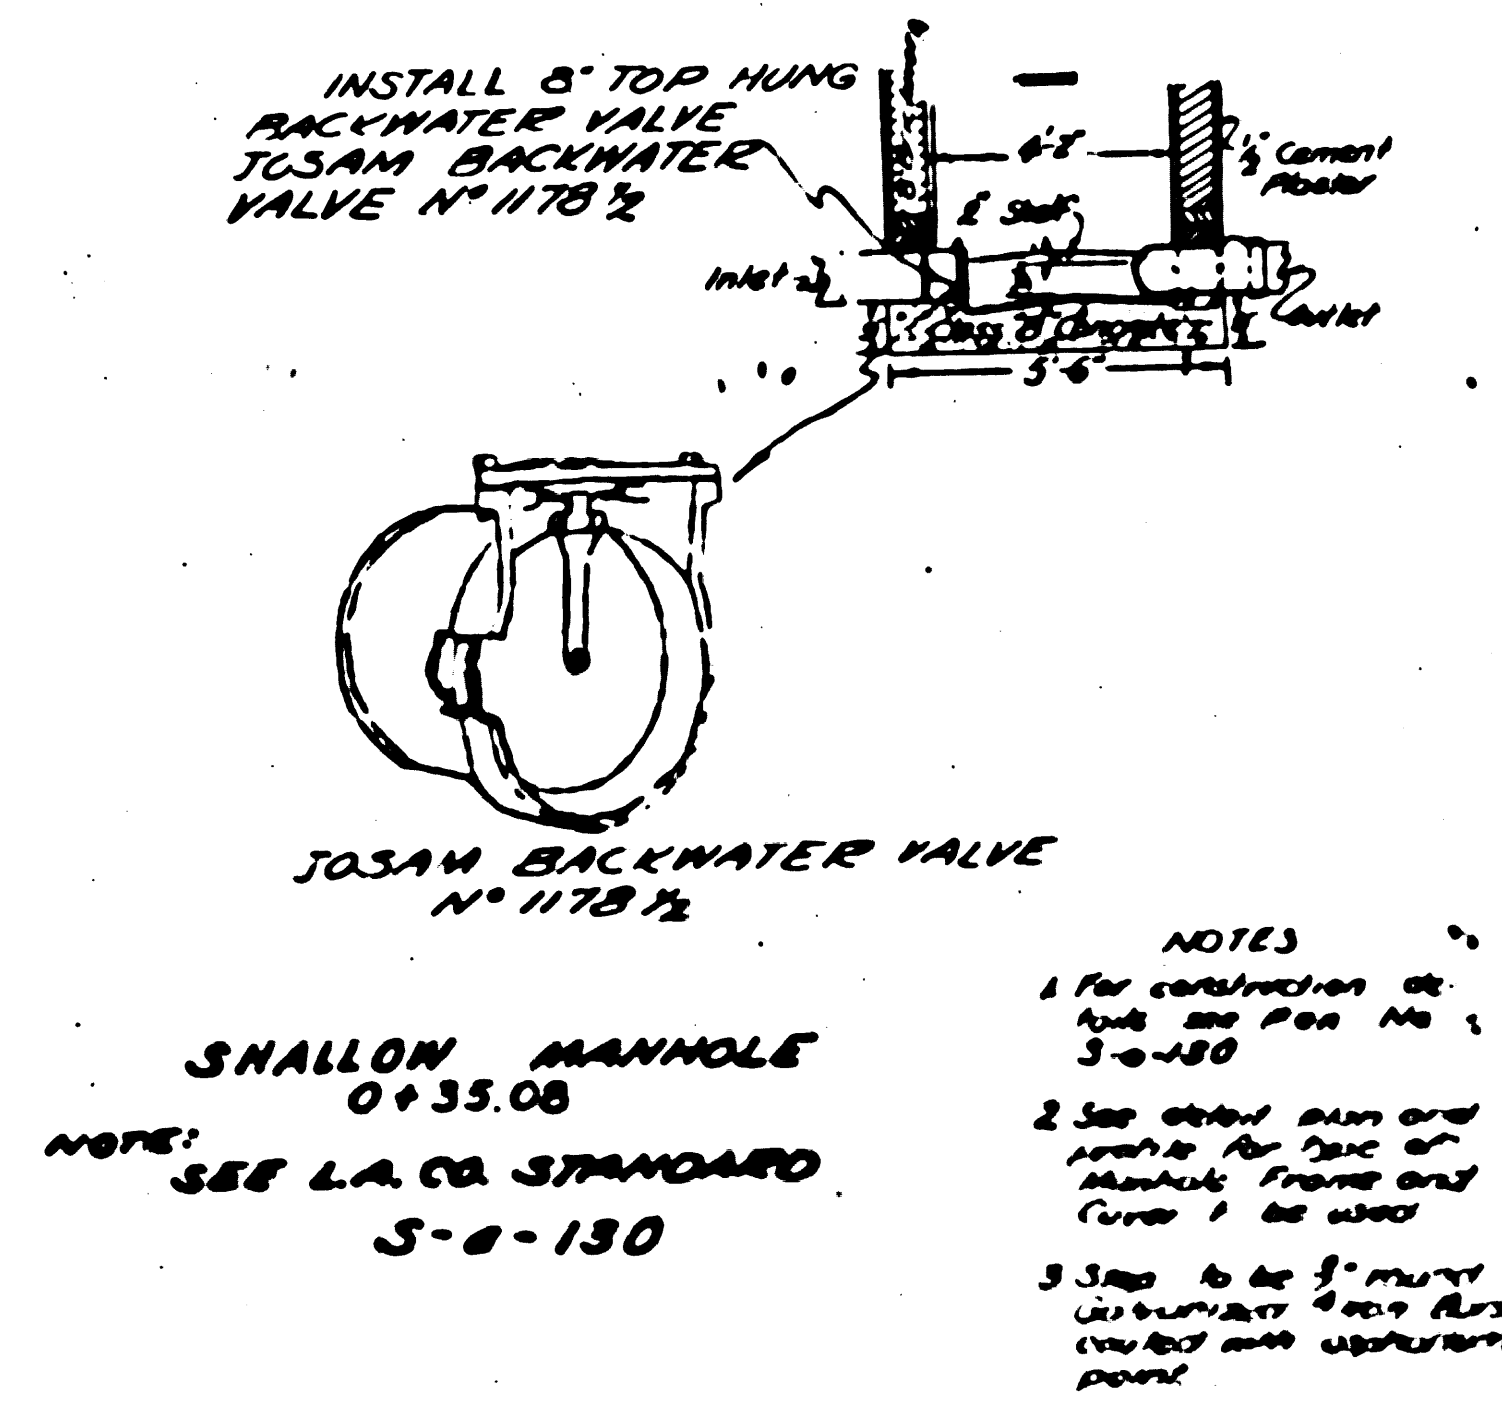 INSTALL 8" TOP HUNG
BACKWATER VALVE
JOSAM BACKWATER
VALVE Nº 1178 ½
4'-2"
½" Cement
Plaster
2" Shelf
Inlet
Outlet
Class "B" Concrete
5'-6"
JOSAM BACKWATER VALVE
Nº 1178 ½
SHALLOW MANHOLE
0+35.08
NOTE:
SEE L.A. CO. STANDARD
S-a-130
NOTES
1 For construction de-
tails see Plan No
S-a-130
2 See detail plan and
profile for type of
Manhole Frame and
Cover to be used
3 Step to be
point